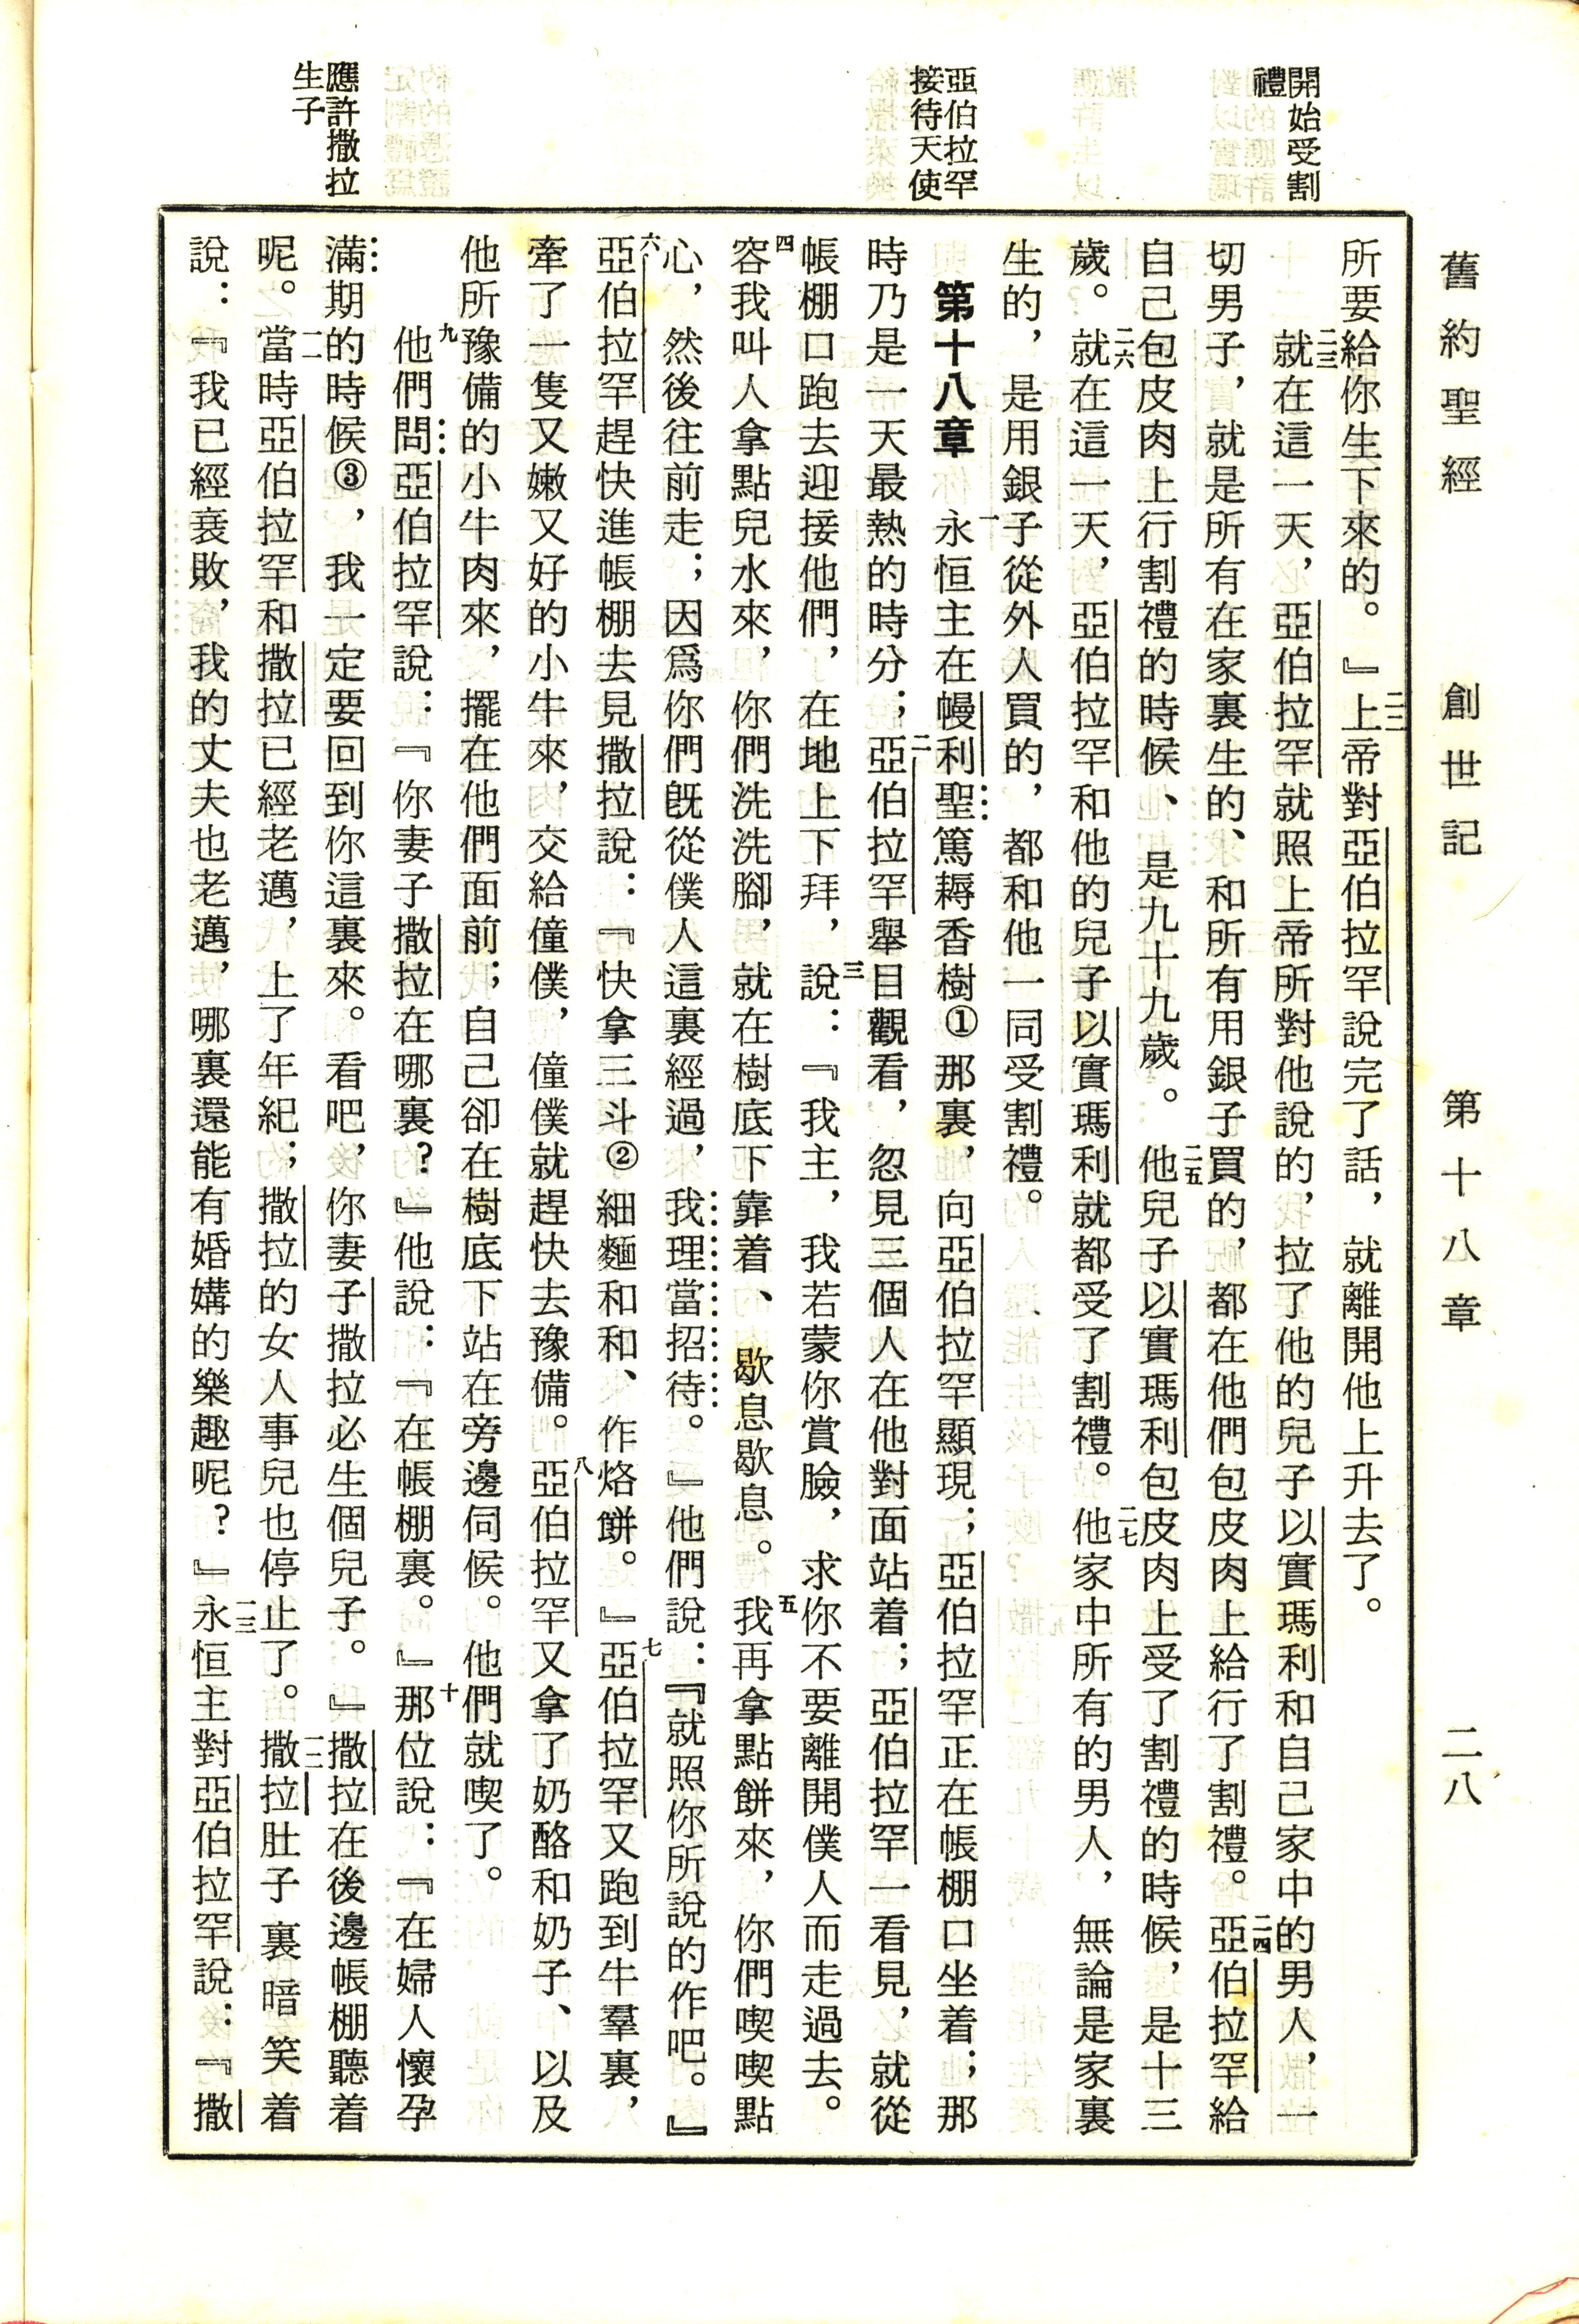 舊約聖經　創世記　第十八章　二八
開始受割
禮
亞伯拉罕
接待天使
應許撒拉
生子
所要給你生下來的。』二二上帝對亞伯拉罕說完了話，就離開他上升去了。
二三就在這一天，亞伯拉罕就照上帝所對他說的，拉了他的兒子以實瑪利和自己家中的男人，一
切男子，就是所有在家裏生的、和所有用銀子買的，都在他們包皮肉上給行了割禮。二四亞伯拉罕給
自己包皮肉上行割禮的時候、是九十九歲。二五他兒子以實瑪利包皮肉上受了割禮的時候，是十三
歲。二六就在這一天，亞伯拉罕和他的兒子以實瑪利就都受了割禮。二七他家中所有的男人，無論是家裏
生的，是用銀子從外人買的，都和他一同受割禮。
第十八章　一永恒主在幔利聖篤耨香樹①那裏，向亞伯拉罕顯現；亞伯拉罕正在帳棚口坐着；那
時乃是一天最熱的時分；二亞伯拉罕舉目觀看，忽見三個人在他對面站着；亞伯拉罕一看見，就從
帳棚口跑去迎接他們，在地上下拜，三說：『我主，我若蒙你賞臉，求你不要離開僕人而走過去。
四容我叫人拿點兒水來，你們洗洗腳，就在樹底下靠着、歇息歇息。五我再拿點餅來，你們喫喫點
心，然後往前走；因爲你們既從僕人這裏經過，我理當招待。』他們說：『就照你所說的作吧。』
六亞伯拉罕趕快進帳棚去見撒拉說：『快拿三斗②細麵和和、作烙餅。』七亞伯拉罕又跑到牛羣裏，
牽了一隻又嫩又好的小牛來，交給僮僕，僮僕就趕快去豫備。八亞伯拉罕又拿了奶酪和奶子、以及
他所豫備的小牛肉來，擺在他們面前；自己卻在樹底下站在旁邊伺候。他們就喫了。
九他們問亞伯拉罕說：『你妻子撒拉在哪裏？』他說：『在帳棚裏。』十那位說：『在婦人懷孕
滿期的時候③，我一定要回到你這裏來。看吧，你妻子撒拉必生個兒子。』撒拉在後邊帳棚聽着
呢。一一當時亞伯拉罕和撒拉已經老邁，上了年紀；撒拉的女人事兒也停止了。一二撒拉肚子裏暗笑着
說：『我已經衰敗，我的丈夫也老邁，哪裏還能有婚媾的樂趣呢？』一三永恒主對亞伯拉罕說：『撒